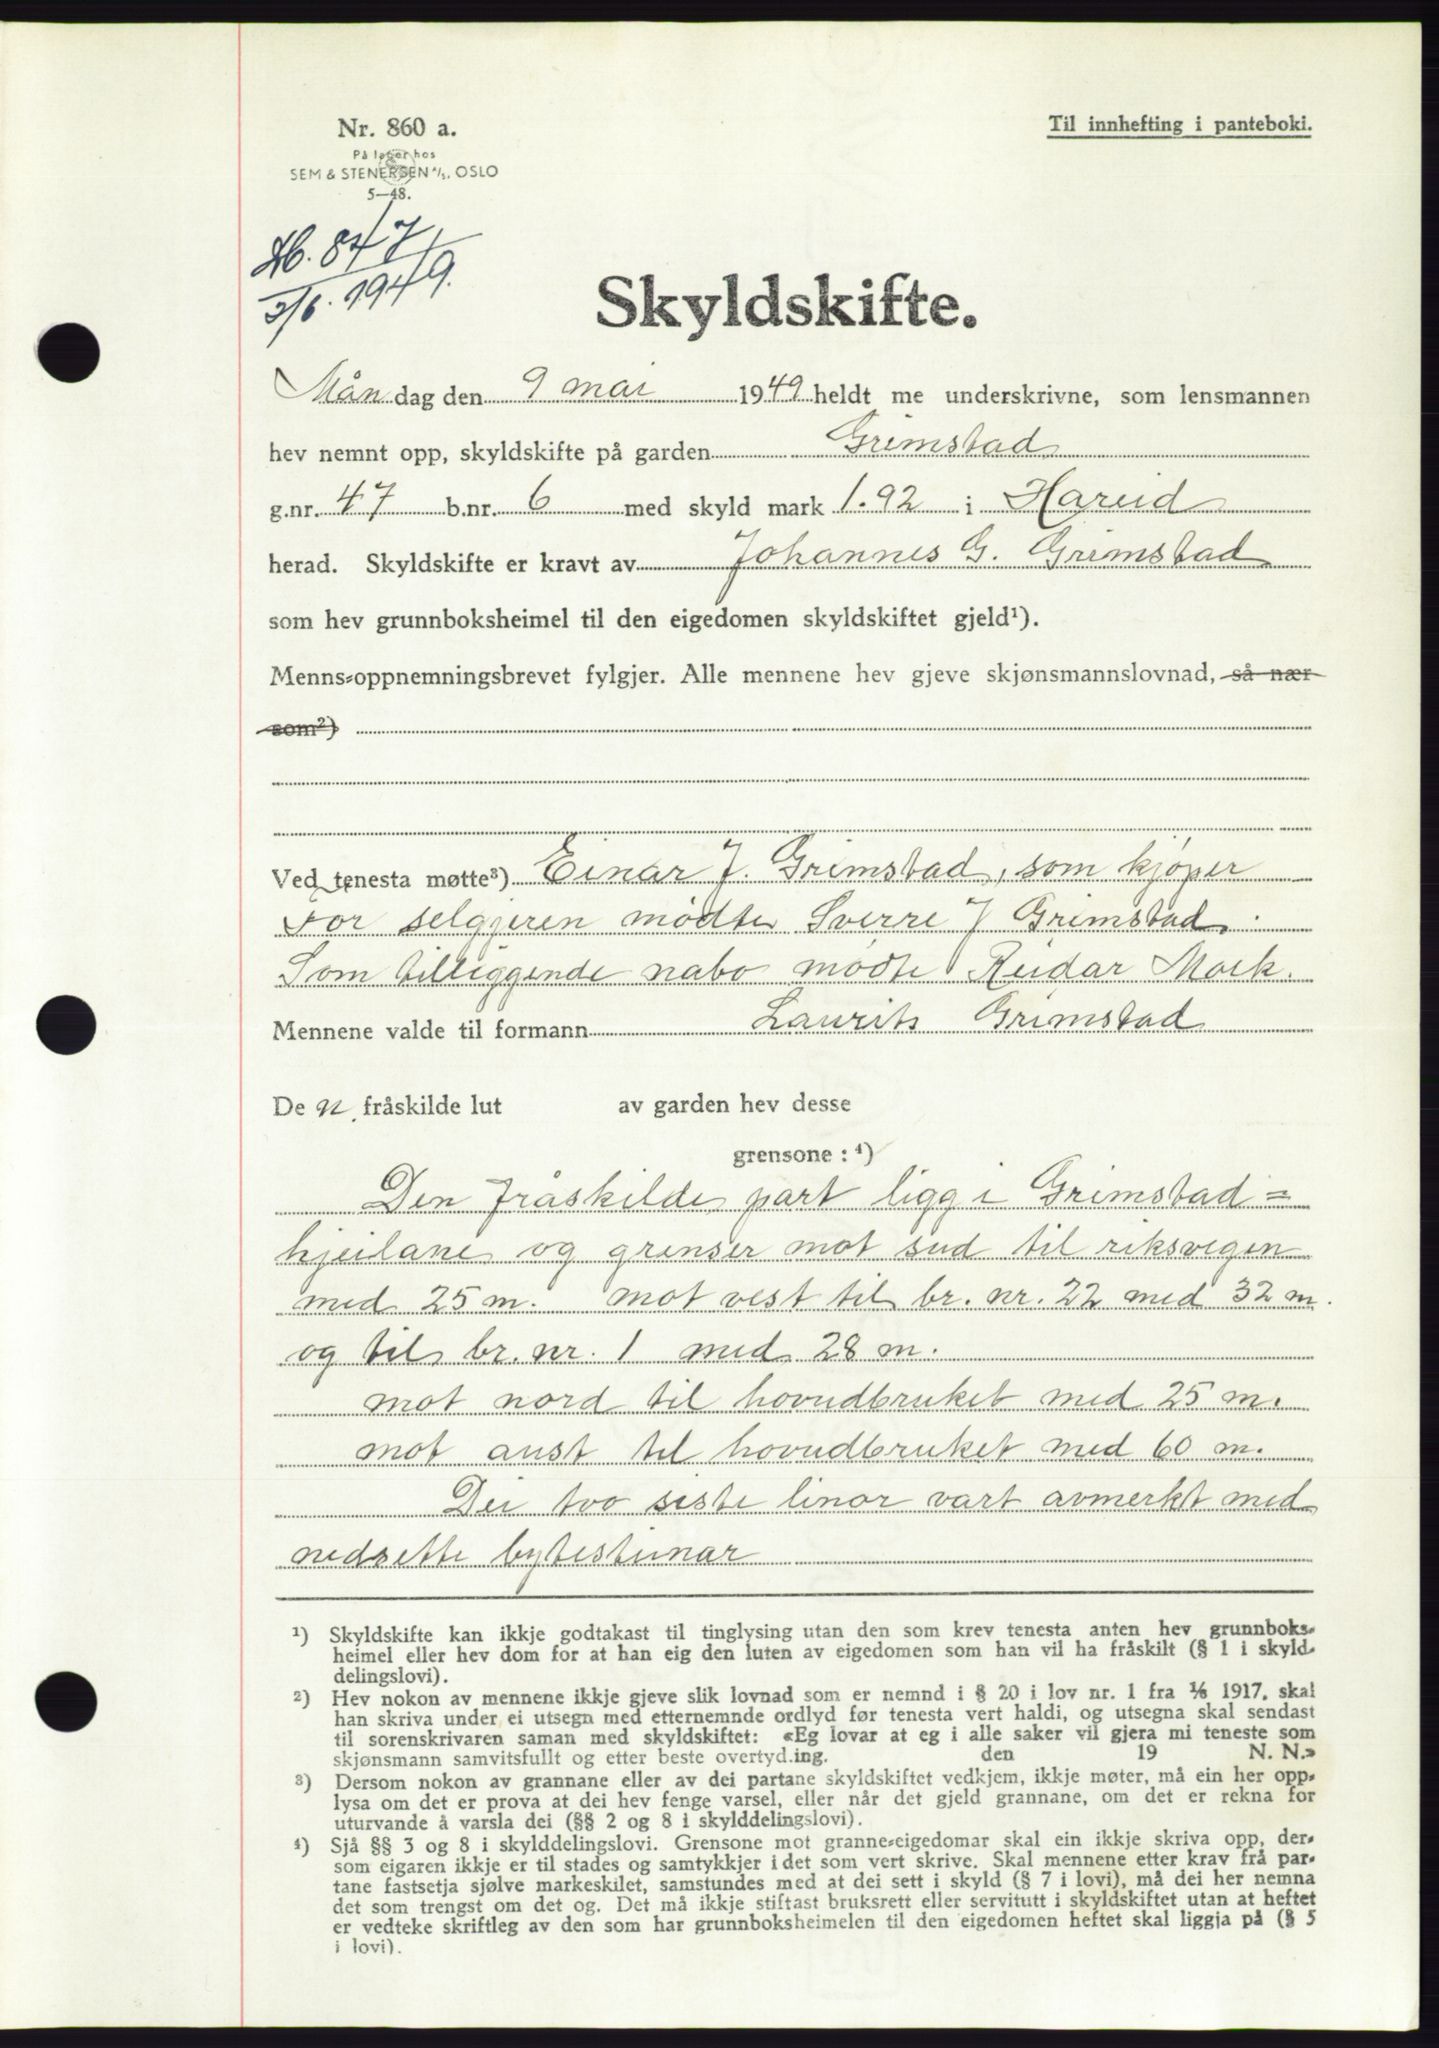 Nr. 860 a.
På lager hos
SEM & STENERSEN A/S, OSLO
5—48.
Til innhefting i panteboki.
Db. 847/
3/6. 1949.
Skyldskifte.
Måndag den 9 mai 1949 heldt me underskrivne, som lensmannen
hev nemnt opp, skyldskifte på garden Grimstad
g.nr. 47 b.nr. 6 med skyld mark 1.92 i Hareid
herad. Skyldskifte er kravt av Johannes G. Grimstad
som hev grunnboksheimel til den eigedomen skyldskiftet gjeld¹).
Menns-oppnemningsbrevet fylgjer. Alle mennene hev gjeve skjønsmannslovnad, så nær
som²)
Ved tenesta møtte³) Einar J. Grimstad, som kjøper
For selgjeren mødte Sverre J Grimstad.
Som tilliggende nabo mødte Reidar Mork.
Mennene valde til formann Laurits Grimstad
De n fråskilde lut av garden hev desse
grensone : ⁴)
Den fråskilde part ligg i Grimstad=
hjeilane og grenser mot sud til riksvegen
med 25 m. mot vest til br. nr. 22 med 32 m.
og til br. nr. 1 med 28 m.
mot nord til hovudbruket med 25 m.
mot aust til hovudbruket med 60 m.
Dei tvo siste linor vart avmerkt med
nedsette bytesteinar
¹) Skyldskifte kan ikkje godtakast til tinglysing utan den som krev tenesta anten hev grunnboks-
heimel eller hev dom for at han eig den luten av eigedomen som han vil ha fråskilt (§ 1 i skyld-
delingslovi).
²) Hev nokon av mennene ikkje gjeve slik lovnad som er nemnd i § 20 i lov nr. 1 fra 1/6 1917, skal
han skriva under ei utsegn med etternemnde ordlyd før tenesta vert haldi, og utsegna skal sendast
til sorenskrivaren saman med skyldskiftet: «Eg lovar at eg i alle saker vil gjera mi teneste som
skjønsmann samvitsfullt og etter beste overtyd.ing. den 19 N. N.»
³) Dersom nokon av grannane eller av dei partane skyldskiftet vedkjem, ikkje møter, må ein her opp-
lysa om det er prova at dei hev fenge varsel, eller når det gjeld grannane, om det er rekna for
uturvande å varsla dei (§§ 2 og 8 i skylddelingslovi).
⁴) Sjå §§ 3 og 8 i skylddelingslovi. Grensone mot granne-eigedomar skal ein ikkje skriva opp, der-
som eigaren ikkje er til stades og samtykkjer i det som vert skrive. Skal mennene etter krav frå par-
tane fastsetja sjølve markeskilet, samstundes med at dei sett i skyld (§ 7 i lovi), må dei her nemna
det som trengst om det og. Det må ikkje stiftast bruksrett eller servitutt i skyldskiftet utan at heftet
er vedteke skriftleg av den som har grunnboksheimelen til den eigedomen heftet skal liggja på (§ 5
i lovi).